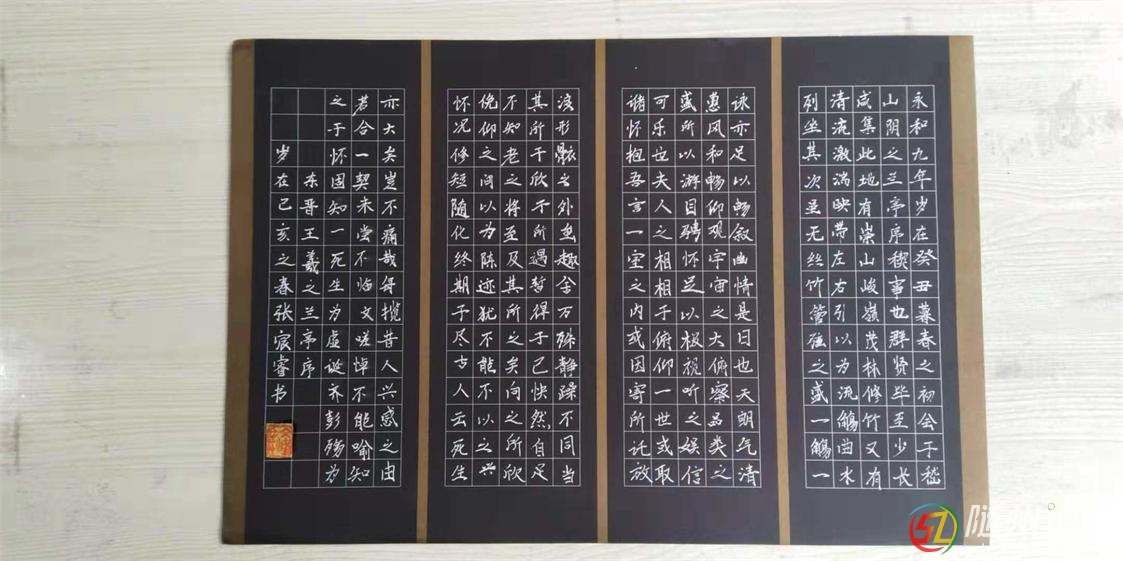 永和九年岁在癸丑暮春之初会于嵇
山阴之兰亭序禊事也群贤毕至少长
咸集此地有崇山峻嶺茂林修竹又有
清流激湍映带左右引以为流觞曲水
列坐其次虽无丝竹管弦之盛一觞一
咏亦足以畅叙幽情是日也天朗气清
惠风和畅仰观宇宙之大俯察品类之
盛所以游目骋怀足以极视听之娱信
可乐也夫人之相相于俯仰一世或取
诸怀抱吾言一室之内或因寄所托放
浪形骸之外虽趣舍万殊静躁不同当
其所于欣于所遇暂得于己快然自足
不知老之将至及其所之矣向之所欣
俛仰之间以为陈迹犹不能不以之兴
怀况修短随化终期于尽古人云死生
亦大矣岂不痛哉每揽昔人兴感之由
若合一契未尝不临文嗟悼不能喻知
之于怀固知一死生为虚诞齐彭殇为
东晋王羲之兰亭序
岁在己亥之春张宸睿书